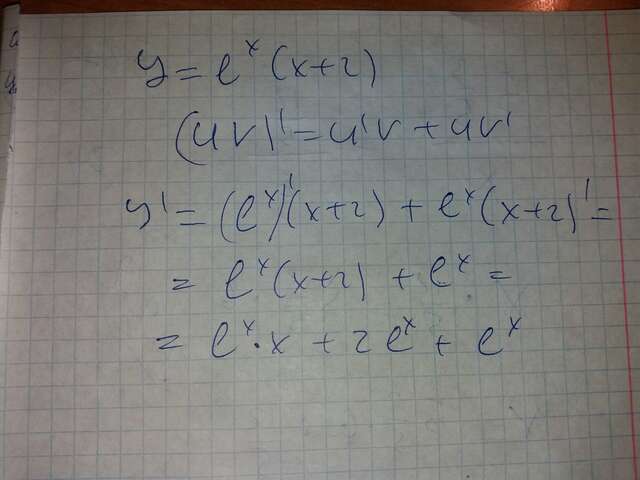 y = e^x (x+2)
(uv)' = u'v + uv'
y' = (e^x)'(x+2) + e^x (x+2)' =
= e^x (x+2) + e^x =
= e^x · x + 2e^x + e^x